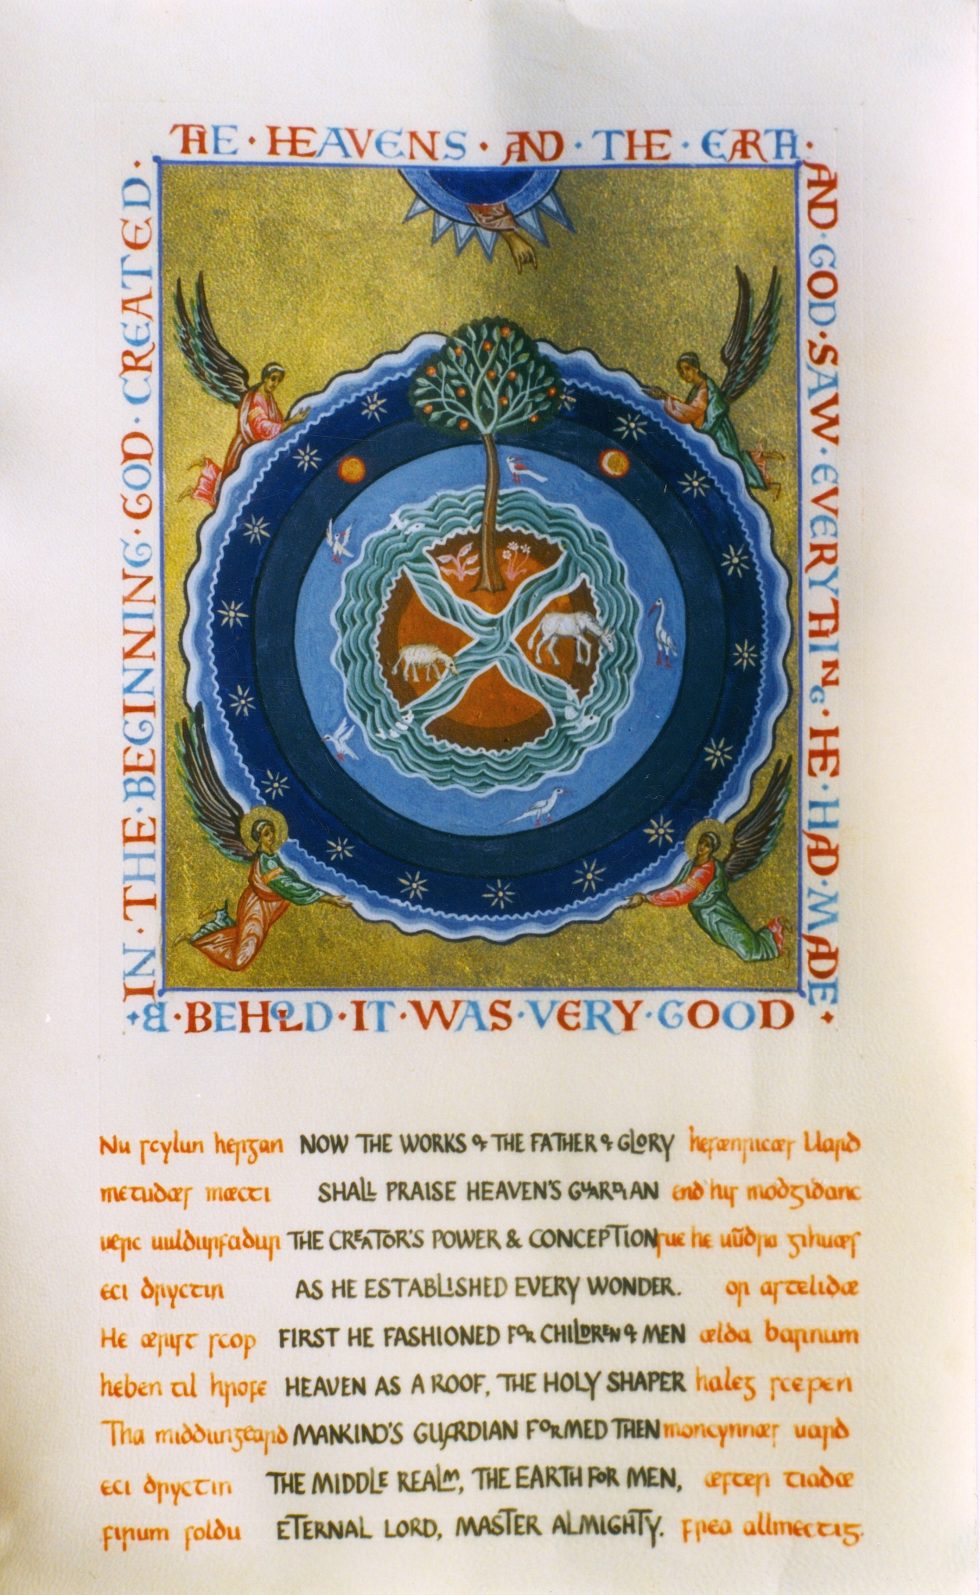 IN · THE · BEGINNING · GOD · CREATED ·
THE · HEAVENS · AND · THE · EARTH ·
AND · GOD · SAW · EVERYTHING · HE · HAD · MADE
& · BEHOLD · IT · WAS · VERY · GOOD
Nu scylun hergan NOW THE WORKS OF THE FATHER OF GLORY hefænricæs Uard
metudæs mæcti SHALL PRAISE HEAVEN'S GUARDIAN end his modgidanc
uerc uuldurfadur THE CREATOR'S POWER & CONCEPTION sue he uūdra gihuæs
eci dryctin AS HE ESTABLISHED EVERY WONDER. or astelidæ
He ærist scop FIRST HE FASHIONED FOR CHILDREN OF MEN ælda barnum
heben til hrofe HEAVEN AS A ROOF, THE HOLY SHAPER haleg scepen
Tha middungeard MANKIND'S GUARDIAN FORMED THEN moncynnæs uard
eci dryctin THE MIDDLE REALM, THE EARTH FOR MEN, æfter tiadæ
firum foldu ETERNAL LORD, MASTER ALMIGHTY. frea allmectig.